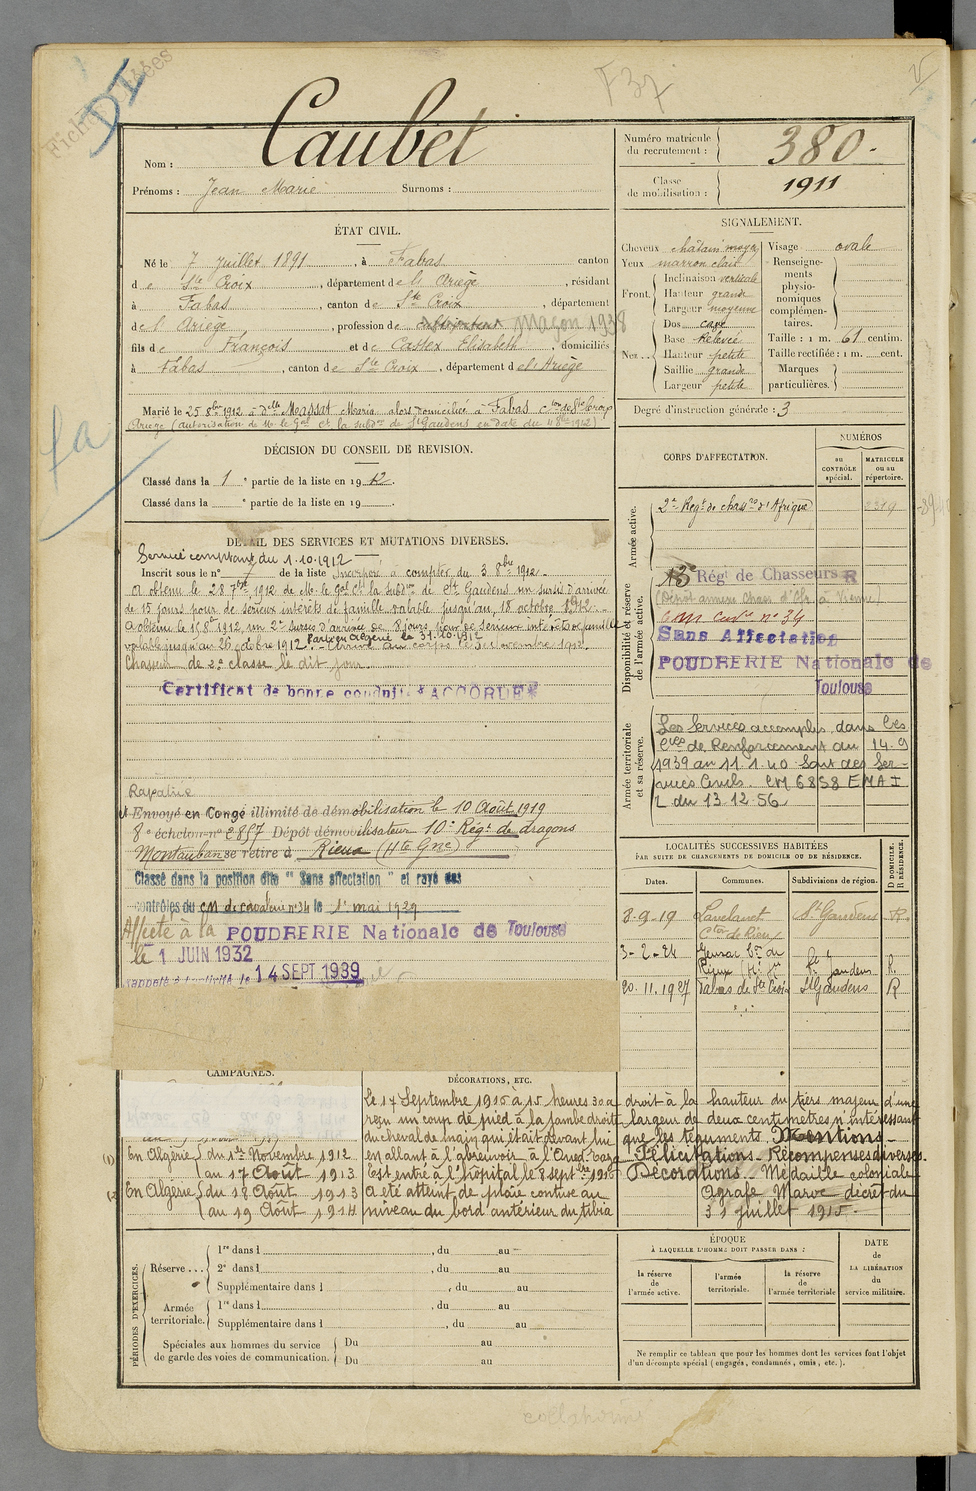 Fichier
DI
F37
Nom : Caubet
Prénoms : Jean Marie Surnoms :
Numéro matricule du recrutement : 380.
Classe de mobilisation : 1911
ÉTAT CIVIL.
Né le 7 Juillet 1891, à Fabas canton
de Ste Croix, département de l'Ariège, résidant
à Fabas, canton de Ste Croix, département
de l'Ariège, profession de cultivateur Maçon 1938
fils de François et de Castex Elisabeth, domiciliés
à Fabas, canton de Ste Croix, département de l'Ariège
Marié le 25 8bre 1912 à Delle Massat Maria alors domiciliée à Fabas con de Ste Croix
Ariège (autorisation de Mr le Gal Ct la subdon de St Gaudens en date du 8bre 1912)
SIGNALEMENT.
Cheveux châtain moyen
Yeux marron clair
Front. Inclinaison verticale
Hauteur grande
Largeur moyenne
Nez.. Dos cave
Base Relevée
Hauteur petite
Saillie grande
Largeur petite
Visage ovale
Renseignements physionomiques complémentaires.
Taille : 1 m. 61 centim.
Taille rectifiée : 1 m. cent.
Marques particulières.
Degré d'instruction générale : 3
DÉCISION DU CONSEIL DE REVISION.
Classé dans la 1e partie de la liste en 1912.
Classé dans la e partie de la liste en 19 .
CORPS D'AFFECTATION.
NUMÉROS
au CONTRÔLE spécial.
MATRICULE ou au répertoire.
Armée active.
2e Régt de chassrs d'Afrique
Disponibilité et réserve de l'armée active.
13 Régt de Chasseurs R
(Dépôt ancien Chass d'Afr à Vienne)
Cm Cavie n° 34
Sans Affectation
POUDRERIE Nationale de
Toulouse
Armée territoriale et sa réserve.
Les Services accomplis dans les
Cies de Renforcement du 14.9
1939 au 11.1.40 sont des Ser-
vices Civils. CM 6858 EMA I
L du 13.12.56
DÉTAIL DES SERVICES ET MUTATIONS DIVERSES.
Service comptant du 1.10.1912
Inscrit sous le n° de la liste Incorporé à compter du 3 8bre 1912.
a obtenu le 28 7bre 1912 de Mr le Gal Ct la subdon de St Gaudens un sursis d'arrivée
de 15 jours pour de sérieux intérêts de famille valable jusqu'au 18 octobre 1912.
a obtenu le 15 8bre 1912, un 2e sursis d'arrivée de 8 jours pour de sérieux intérêts de famille
valable jusqu'au 26 octobre 1912. Parti en Algérie le 31.10.1912
Arrivé au corps le 1er novembre 1912
Chasseur de 2e classe le dit jour.
Certificat de bonne conduite "ACCORDÉ"
Rapatrié
et Envoyé en Congé illimité de démobilisation le 10 Août 1919
8e échelon n° 2857 Dépôt démobilisateur 10e Régt de dragons
Montauban se retire à Rieux (Hte Gne)
Classé dans la position dite " Sans affectation " et rayé des
contrôles du CM de cavalerie n° 34 le 1er mai 1929
Affecté à la POUDRERIE Nationale de Toulouse
le 1 JUIN 1932
rappelé à l'activité le 14 SEPT 1939
LOCALITÉS SUCCESSIVES HABITÉES
PAR SUITE DE CHANGEMENTS DE DOMICILE OU DE RÉSIDENCE.
Dates. Communes. Subdivisions de région. D DOMICILE. R RÉSIDENCE.
8-9-19 Lavelanet Cton de Rieux St Gaudens R.
3-2-24 Gensac Con de Rieux (Hte Gne) St Gaudens R.
20.11.1927 Fabas de Ste Croix St Gaudens R
CAMPAGNES.
(1) En Algérie du 1er Novembre 1912
au 17 Août 1913
(2) En Algérie du 18 Août 1913
au 19 Août 1914
DÉCORATIONS, ETC.
Le 17 Septembre 1915 à 15 heures 30 a
reçu un coup de pied à la jambe droite
du cheval de main qui était devant lui
en allant à l'abreuvoir à l'Oued
Est entré à l'hôpital le 8 septbre 1915
a été atteint de plaie contuse au
niveau du bord antérieur du tibia
droit à la hauteur du tiers majeur d'une
largeur de deux centimètres n'intéressant
que les téguments. Mentions
Félicitations - Récompenses diverses
Décorations - Médaille coloniale
Agrafe Maroc décret du
31 juillet 1915.
PÉRIODES D'EXERCICES.
Réserve ... 1re dans l , du au
2e dans l , du au
Supplémentaire dans l , du au
Armée territoriale. 1re dans l , du au
Supplémentaire dans l , du au
Spéciales aux hommes du service de garde des voies de communication. Du au
Du au
ÉPOQUE
À LAQUELLE L'HOMME DOIT PASSER DANS :
la réserve de l'armée active.
l'armée territoriale.
la réserve de l'armée territoriale
DATE de LA LIBÉRATION du service militaire.
Ne remplir ce tableau que pour les hommes dont les services font l'objet
d'un décompte spécial (engagés, condamnés, omis, etc.).